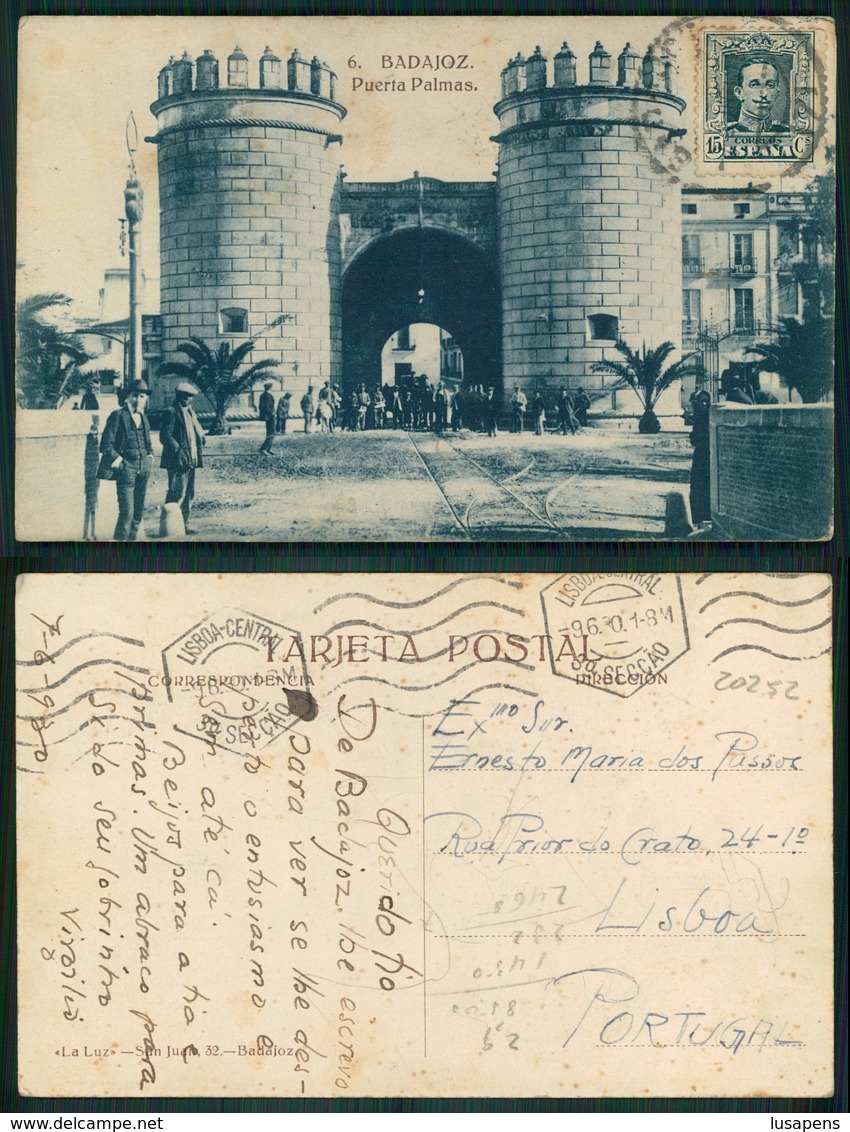 6. BADAJOZ.
Puerta Palmas.
15 CORREOS Cs
ESPAÑA
TARJETA POSTAL
CORRESPONDENCIA
DIRECCIÓN
LISBOA-CENTRAL
3ª SECÇÃO
LISBOA-CENTRAL
-9.6.30.1-8M
3ª SECÇÃO
20252
7-6-930
Querido tio
De Badajoz, lhe escrevo
para ver se lhe des-
perto o entusiasmo e
vem até cá.
Beijos para a tia e
primas. Um abraço para
si do seu sobrinho
Virgilio
Exmo Snr.
Ernesto Maria dos Passos
Rua Prior do Crato, 24-1º
Lisboa
PORTUGAL
«La Luz» — San Juan, 32. — Badajoz
lusapens